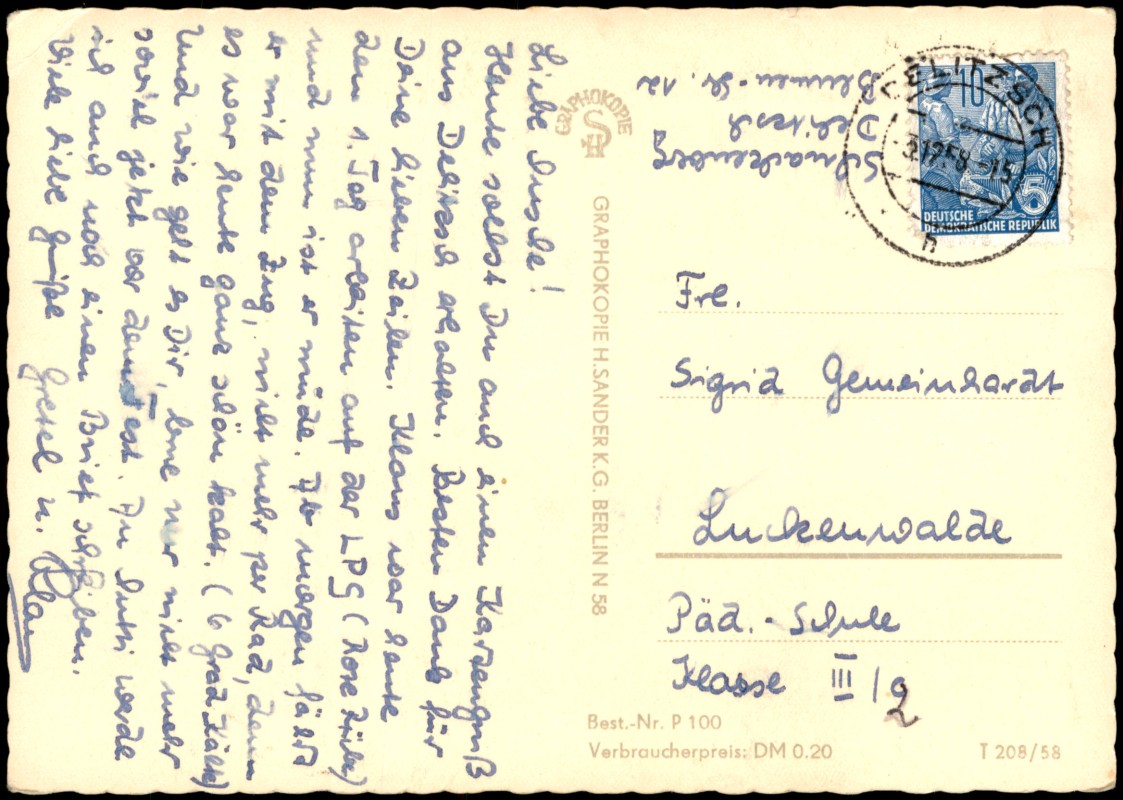 Liebe Musche!
Heute sollst Du auch einen Kartengruß
aus Delitzsch erhalten. Besten Dank für
Deine lieben Zeilen. Klaus war heute
den 1. Tag arbeiten auf der LPG (Rote Rüben)
und nun ist er müde. Ab morgen fährt
er mit dem Zug, nicht mehr per Rad, denn
es war heute ganz schön kalt. (6 Grad Kälte)
Und wie geht es Dir, lerne nur nicht mehr
soviel jetzt vor dem Fest. An Mutti werde
ich auch noch einen Brief schreiben.
Viele liebe Grüße Gretel u. Klaus
GRAPHOKOPIE
SH
GRAPHOKOPIE H. SANDER K.G. BERLIN N 58
Delitzsch
Blumen-Str. 12
DELITZSCH
3.12.58.-15
h
10
5
DEUTSCHE
DEMOKRATISCHE REPUBLIK
Frl.
Sigrid Gemeinhardt
Luckenwalde
Päd.-Schule
Klasse III/2
Best.-Nr. P 100
Verbraucherpreis: DM 0.20
T 208/58